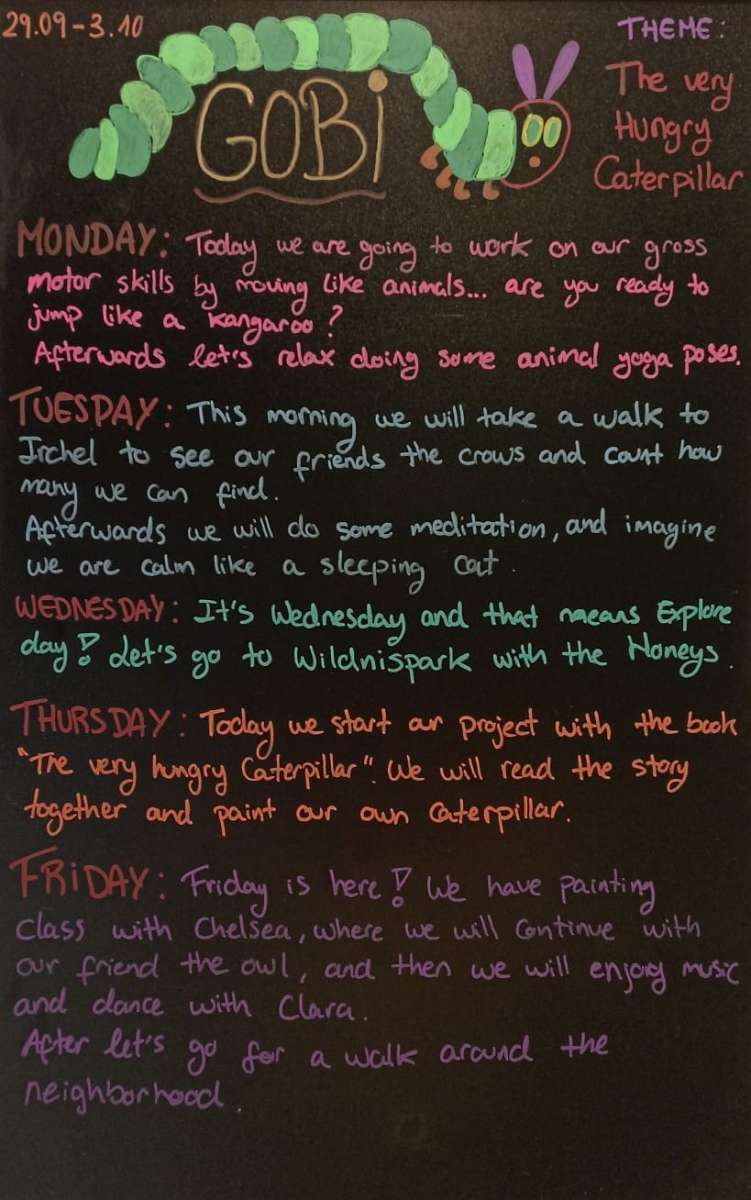 29.09-3.10
GOBi
THEME:
The very
Hungry
Caterpillar
MONDAY: Today we are going to work on our gross
motor skills by moving like animals... are you ready to
jump like a kangaroo?
Afterwards let's relax doing some animal yoga poses.
TUESDAY: This morning we will take a walk to
Irchel to see our friends the crows and count how
many we can find.
Afterwards we will do some meditation, and imagine
we are calm like a sleeping cat.
WEDNESDAY: It's Wednesday and that means Explore
day! Let's go to Wildnispark with the Honeys.
THURSDAY: Today we start our project with the book
"The very hungry Caterpillar". We will read the story
together and paint our own caterpillar.
FRiDAY: Friday is here! We have painting
class with Chelsea, where we will continue with
our friend the owl, and then we will enjoy music
and dance with Clara.
After let's go for a walk around the
neighborhood.